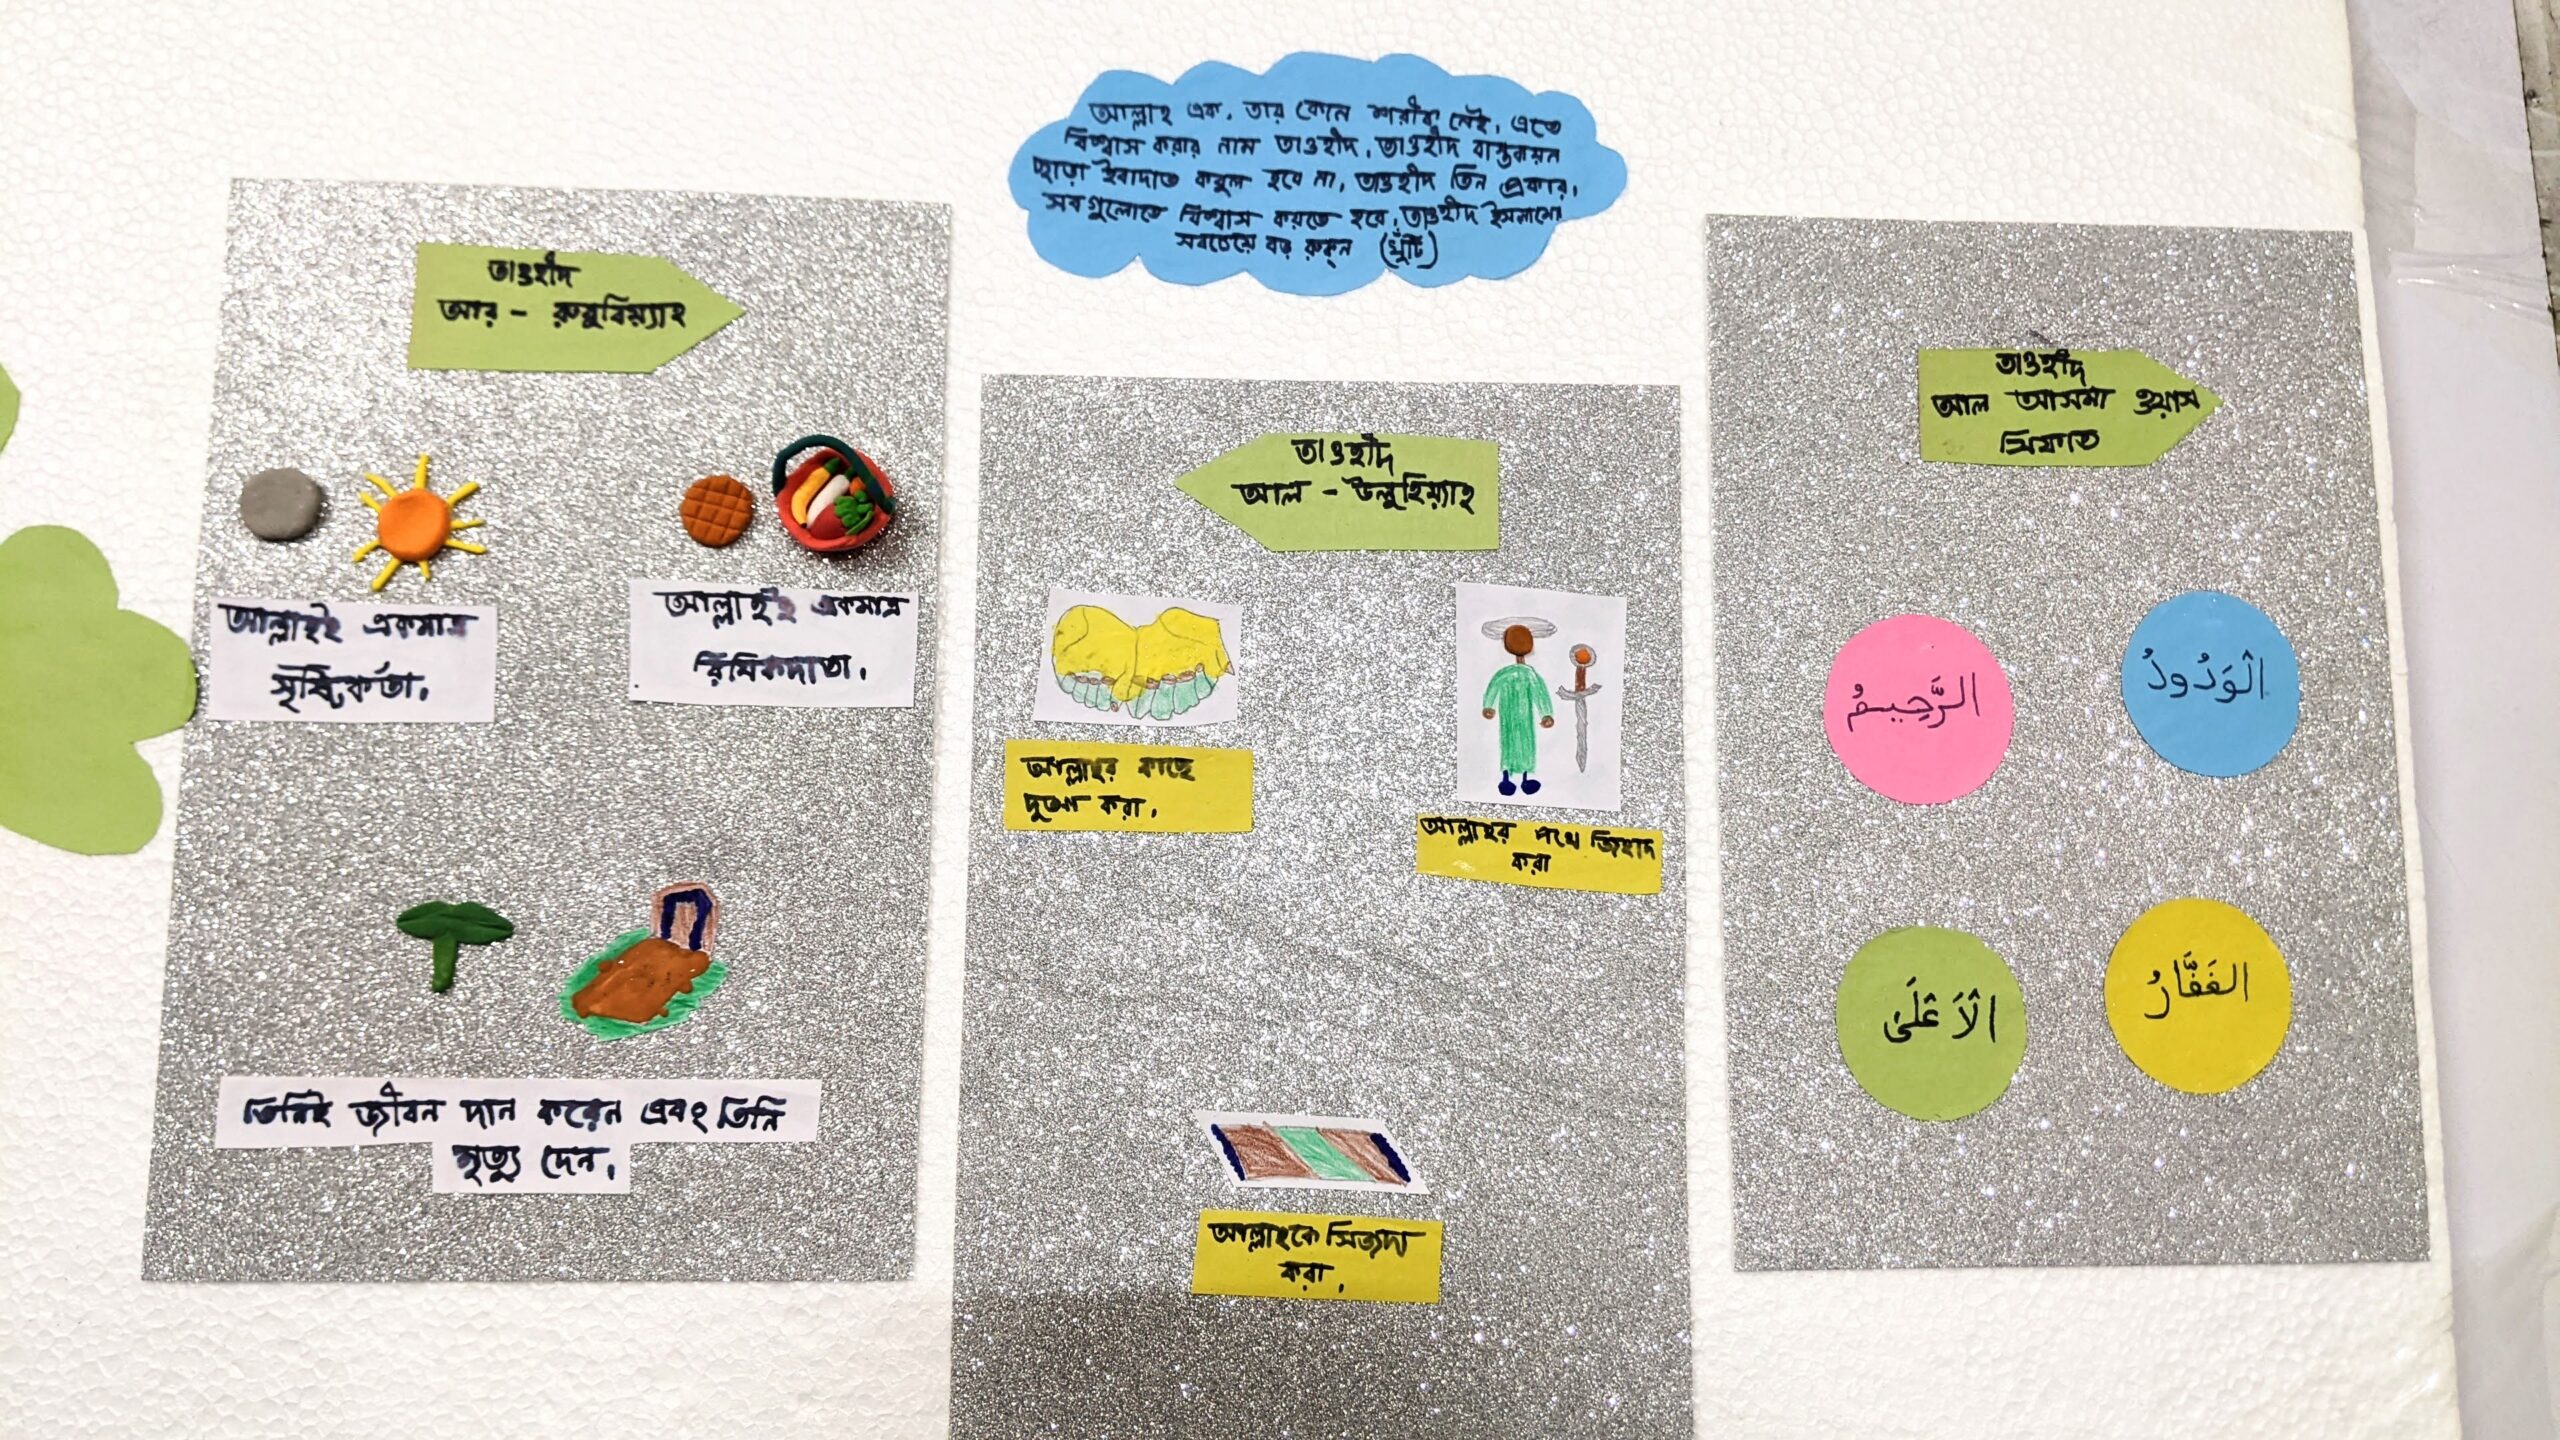 আল্লাহ এক, তার কোন শরীক নেই, এতে
বিশ্বাস করার নাম তাওহীদ, তাওহীদ বাস্তবায়ন
ছাড়া ইবাদাত কবুল হবে না, তাওহীদ তিন প্রকার,
সবগুলোতে বিশ্বাস করতে হবে, তাওহীদ ইসলামের
সবচেয়ে বড় রুকন (খুঁটি)
তাওহীদ
আর - রুবুবিয়্যাহ
আল্লাহই একমাত্র
সৃষ্টিকর্তা.
আল্লাহই একমাত্র
রিযিকদাতা.
তিনিই জীবন দান করেন এবং তিনি
মৃত্যু দেন.
তাওহীদ
আল - উলুহিয়্যাহ
আল্লাহর কাছে
দুআ করা.
আল্লাহর পথে জিহাদ
করা
আল্লাহকে সিজদা
করা.
তাওহীদ
আল আসমা ওয়াস
সিফাত
الرَّحِيمُ
الْوَدُودُ
الْاَعْلَىٰ
الغَفَّارُ